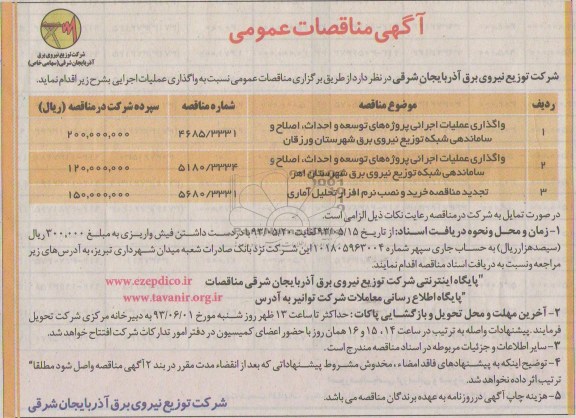 آگهی مناقصات عمومی
شرکت توزیع نیروی برق
آذربایجان شرقی (سهامی خاص)
شرکت توزیع نیروی برق آذربایجان شرقی در نظر دارد از طریق برگزاری مناقصات عمومی نسبت به واگذاری عملیات اجرایی بشرح زیر اقدام نماید.
ردیف موضوع مناقصه شماره مناقصه سپرده شرکت در مناقصه (ریال)
۱ واگذاری عملیات اجرائی پروژه‌های توسعه و احداث، اصلاح و ساماندهی شبکه توزیع نیروی برق شهرستان ورزقان ۴۶۸۵/۳۳۳۱ ۲۰۰,۰۰۰,۰۰۰
۲ واگذاری عملیات اجرائی پروژه‌های توسعه و احداث، اصلاح و ساماندهی شبکه توزیع نیروی برق شهرستان اهر ۵۱۸۰/۳۳۳۴ ۱۲۰,۰۰۰,۰۰۰
۳ تجدید مناقصه خرید و نصب نرم افزار تحلیل آماری ۵۶۸۰/۳۳۳۱ ۱۵۰,۰۰۰,۰۰۰
در صورت تمایل به شرکت در مناقصه رعایت نکات ذیل الزامی است.
۱- زمان و محل و نحوه دریافت اسناد: از تاریخ ۹۳/۰۵/۱۵ لغایت ۹۳/۰۵/۲۰ با در دست داشتن فیش واریزی به مبلغ ۳۰۰,۰۰۰ ریال
(سیصد هزار ریال) به حساب جاری سپهر شماره ۰۱۰۱۸۰۵۹۶۳۰۰۴ این شرکت نزد بانک صادرات شعبه میدان شهرداری تبریز، به آدرس‌های زیر
مراجعه و نسبت به دریافت اسناد مناقصه اقدام نمایند.
"پایگاه اینترنتی شرکت توزیع نیروی برق آذربایجان شرقی مناقصات www.ezepdico.ir
"پایگاه اطلاع رسانی معاملات شرکت توانیر به آدرس www.tavanir.org.ir
۲- آخرین مهلت و محل تحویل و بازگشایی پاکات: حداکثر تا ساعت ۱۳ ظهر روز شنبه مورخ ۹۳/۰۶/۰۱ به دبیرخانه مرکزی شرکت تحویل
فرمایند. پیشنهادات واصله به ترتیب در ساعت ۱۴، ۱۵ و ۱۶ همان روز با حضور اعضای کمیسیون در دفتر امور تدارکات شرکت افتتاح خواهد شد.
۳- سایر اطلاعات و جزئیات مربوطه در اسناد مناقصه مندرج است.
۴- توضیح اینکه به پیشنهادهای فاقد امضاء، مخدوش مشروط پیشنهاداتی که بعد از انقضاء مدت مقرر در بند ۲ آگهی مناقصه واصل شود مطلقا"
ترتیب اثر داده نخواهد شد.
۵- هزینه چاپ آگهی در روزنامه به عهده برندگان مناقصه می باشد.
شرکت توزیع نیروی برق آذربایجان شرقی